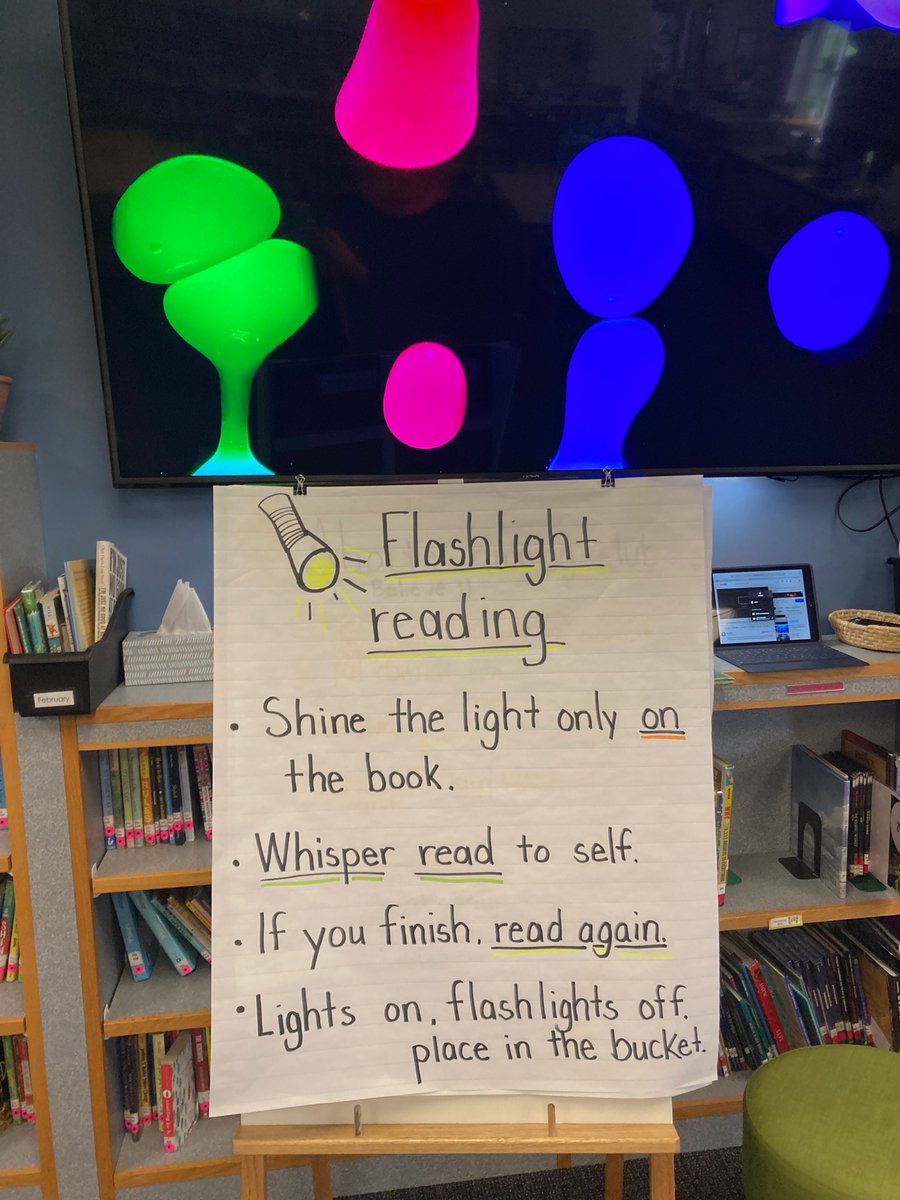 Flashlight
reading
• Shine the light only on
the book.
• Whisper read to self.
• If you finish, read again.
• Lights on, flashlights off.
place in the bucket.
February